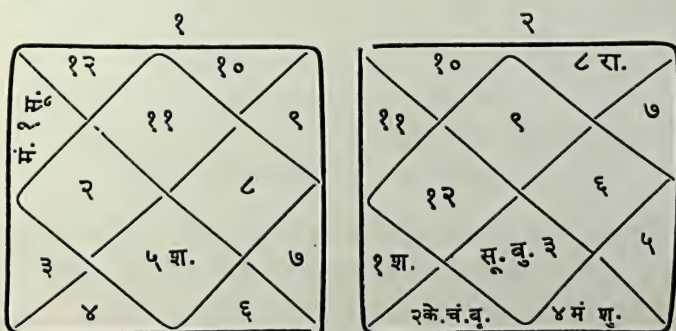 १
२
१२
१०
मं. १ सू.
११
९
२
८
३
५ श.
७
४
६
१०
८ रा.
११
९
७
१२
६
१ श.
सू. बु. ३
५
२के.चं.बृ.
४ मं शु.